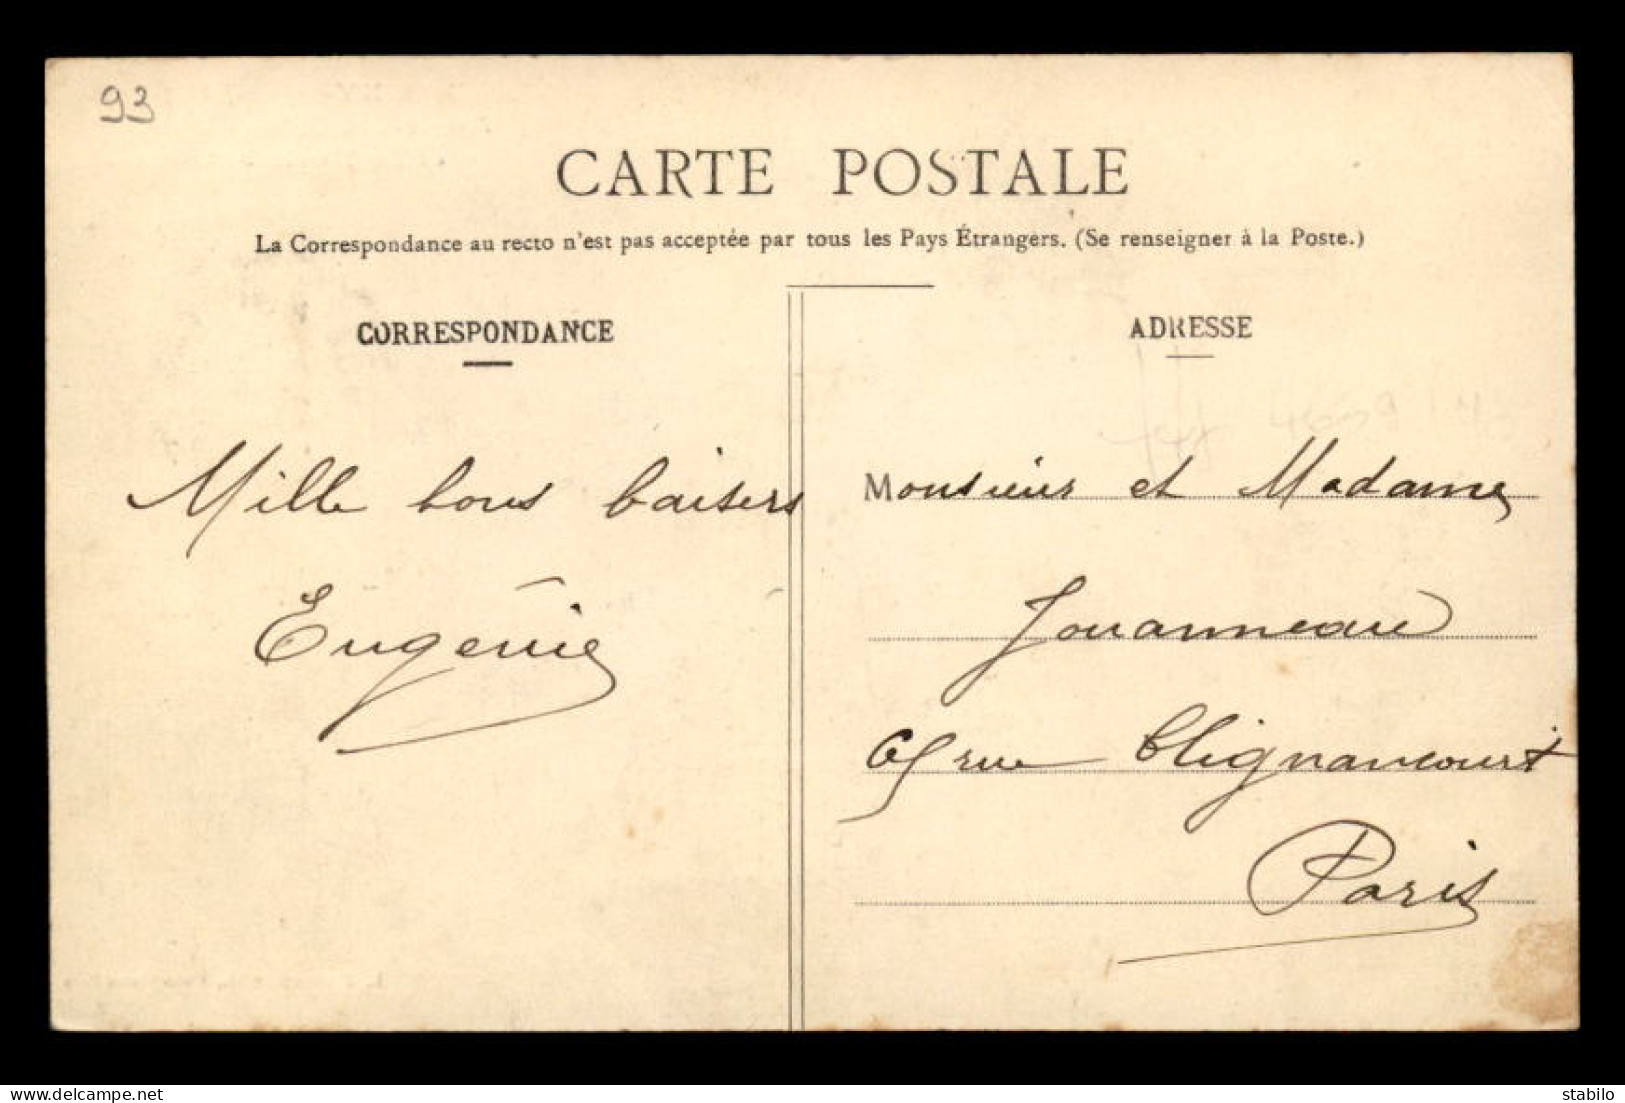 93
CARTE POSTALE
La Correspondance au recto n'est pas acceptée par tous les Pays Étrangers. (Se renseigner à la Poste.)
CORRESPONDANCE
Mille bons baisers
Eugénie
ADRESSE
Monsieur et Madame
Jouanneau
rue Clignancourt
Paris
stabilo
www.delcampe.net